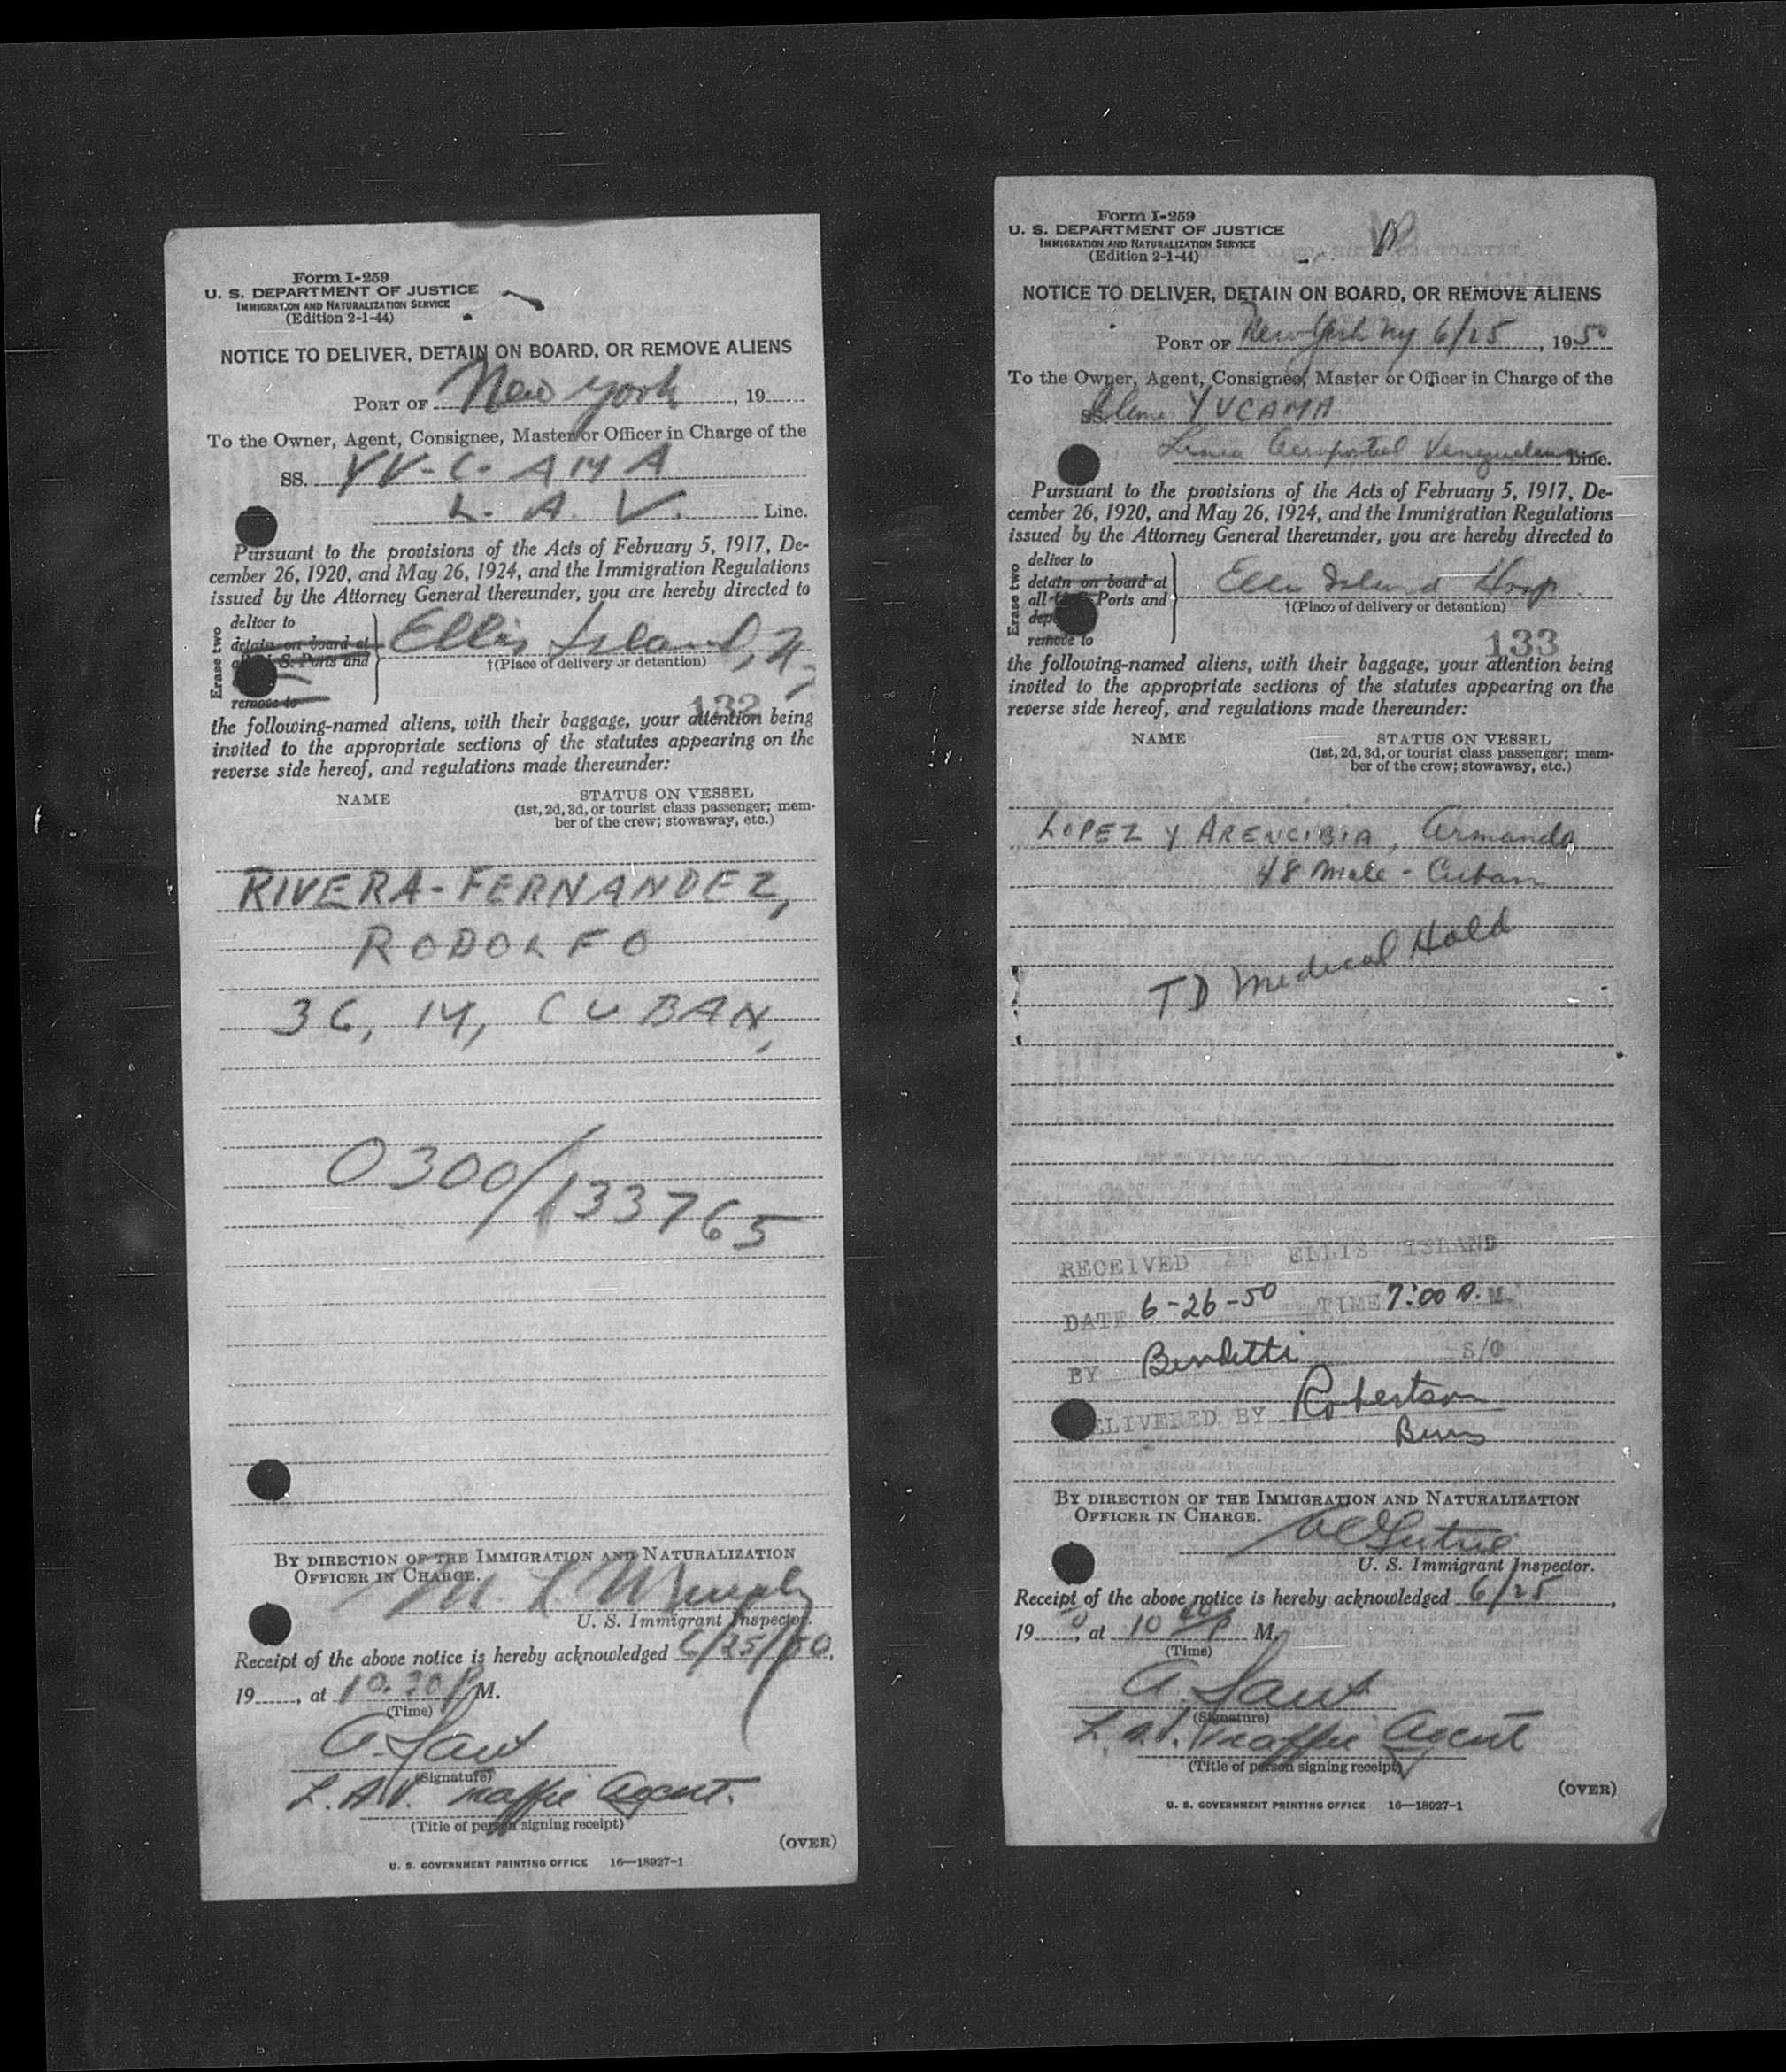 Form I-259
U. S. DEPARTMENT OF JUSTICE
IMMIGRATION AND NATURALIZATION SERVICE
(Edition 2-1-44)
NOTICE TO DELIVER, DETAIN ON BOARD, OR REMOVE ALIENS
PORT OF New York, 19
To the Owner, Agent, Consignee, Master or Officer in Charge of the
SS. YV-C-AMA
L. A. V. Line.
Pursuant to the provisions of the Acts of February 5, 1917, De-
cember 26, 1920, and May 26, 1924, and the Immigration Regulations
issued by the Attorney General thereunder, you are hereby directed to
Erase two
deliver to
detain on board at
S. Ports and
remove to
Ellis Island, N.
†(Place of delivery or detention)
132
the following-named aliens, with their baggage, your attention being
invited to the appropriate sections of the statutes appearing on the
reverse side hereof, and regulations made thereunder:
NAME STATUS ON VESSEL
(1st, 2d, 3d, or tourist class passenger; mem-
ber of the crew; stowaway, etc.)
RIVERA-FERNANDEZ,
RODOLFO
36, M, CUBAN,
0300/133765
BY DIRECTION OF THE IMMIGRATION AND NATURALIZATION
OFFICER IN CHARGE.
M. L. Murphy
U. S. Immigrant Inspector.
Receipt of the above notice is hereby acknowledged 6/25/50,
19, at 10.20 P M.
(Time)
(Signature)
L.A.V. Traffic Agent.
(Title of person signing receipt)
(OVER)
U. S. GOVERNMENT PRINTING OFFICE 16—18027-1
Form I-259
U. S. DEPARTMENT OF JUSTICE
IMMIGRATION AND NATURALIZATION SERVICE
(Edition 2-1-44)
NOTICE TO DELIVER, DETAIN ON BOARD, OR REMOVE ALIENS
PORT OF New York NY 6/25, 1950
To the Owner, Agent, Consignee, Master or Officer in Charge of the
Plane YVCAMA
Linea Aeropostal Venezolana Line.
Pursuant to the provisions of the Acts of February 5, 1917, De-
cember 26, 1920, and May 26, 1924, and the Immigration Regulations
issued by the Attorney General thereunder, you are hereby directed to
Erase two
deliver to
detain on board at
all Ports and
dep
remove to
Ellis Island Hosp.
†(Place of delivery or detention)
133
the following-named aliens, with their baggage, your attention being
invited to the appropriate sections of the statutes appearing on the
reverse side hereof, and regulations made thereunder:
NAME STATUS ON VESSEL
(1st, 2d, 3d, or tourist class passenger; mem-
ber of the crew; stowaway, etc.)
LOPEZ Y ARENCIBIA, Armando
48 Male - Cuban
TD Medical Hold
RECEIVED AT ELLIS ISLAND
DATE 6-26-50 TIME 7:00 A. M.
BY S/O
DELIVERED BY Robertson
BY DIRECTION OF THE IMMIGRATION AND NATURALIZATION
OFFICER IN CHARGE.
U. S. Immigrant Inspector.
Receipt of the above notice is hereby acknowledged 6/25,
190, at 10 P M.
(Time)
(Signature)
L.A.V. Traffic Agent
(Title of person signing receipt)
(OVER)
U. S. GOVERNMENT PRINTING OFFICE 16—18027-1